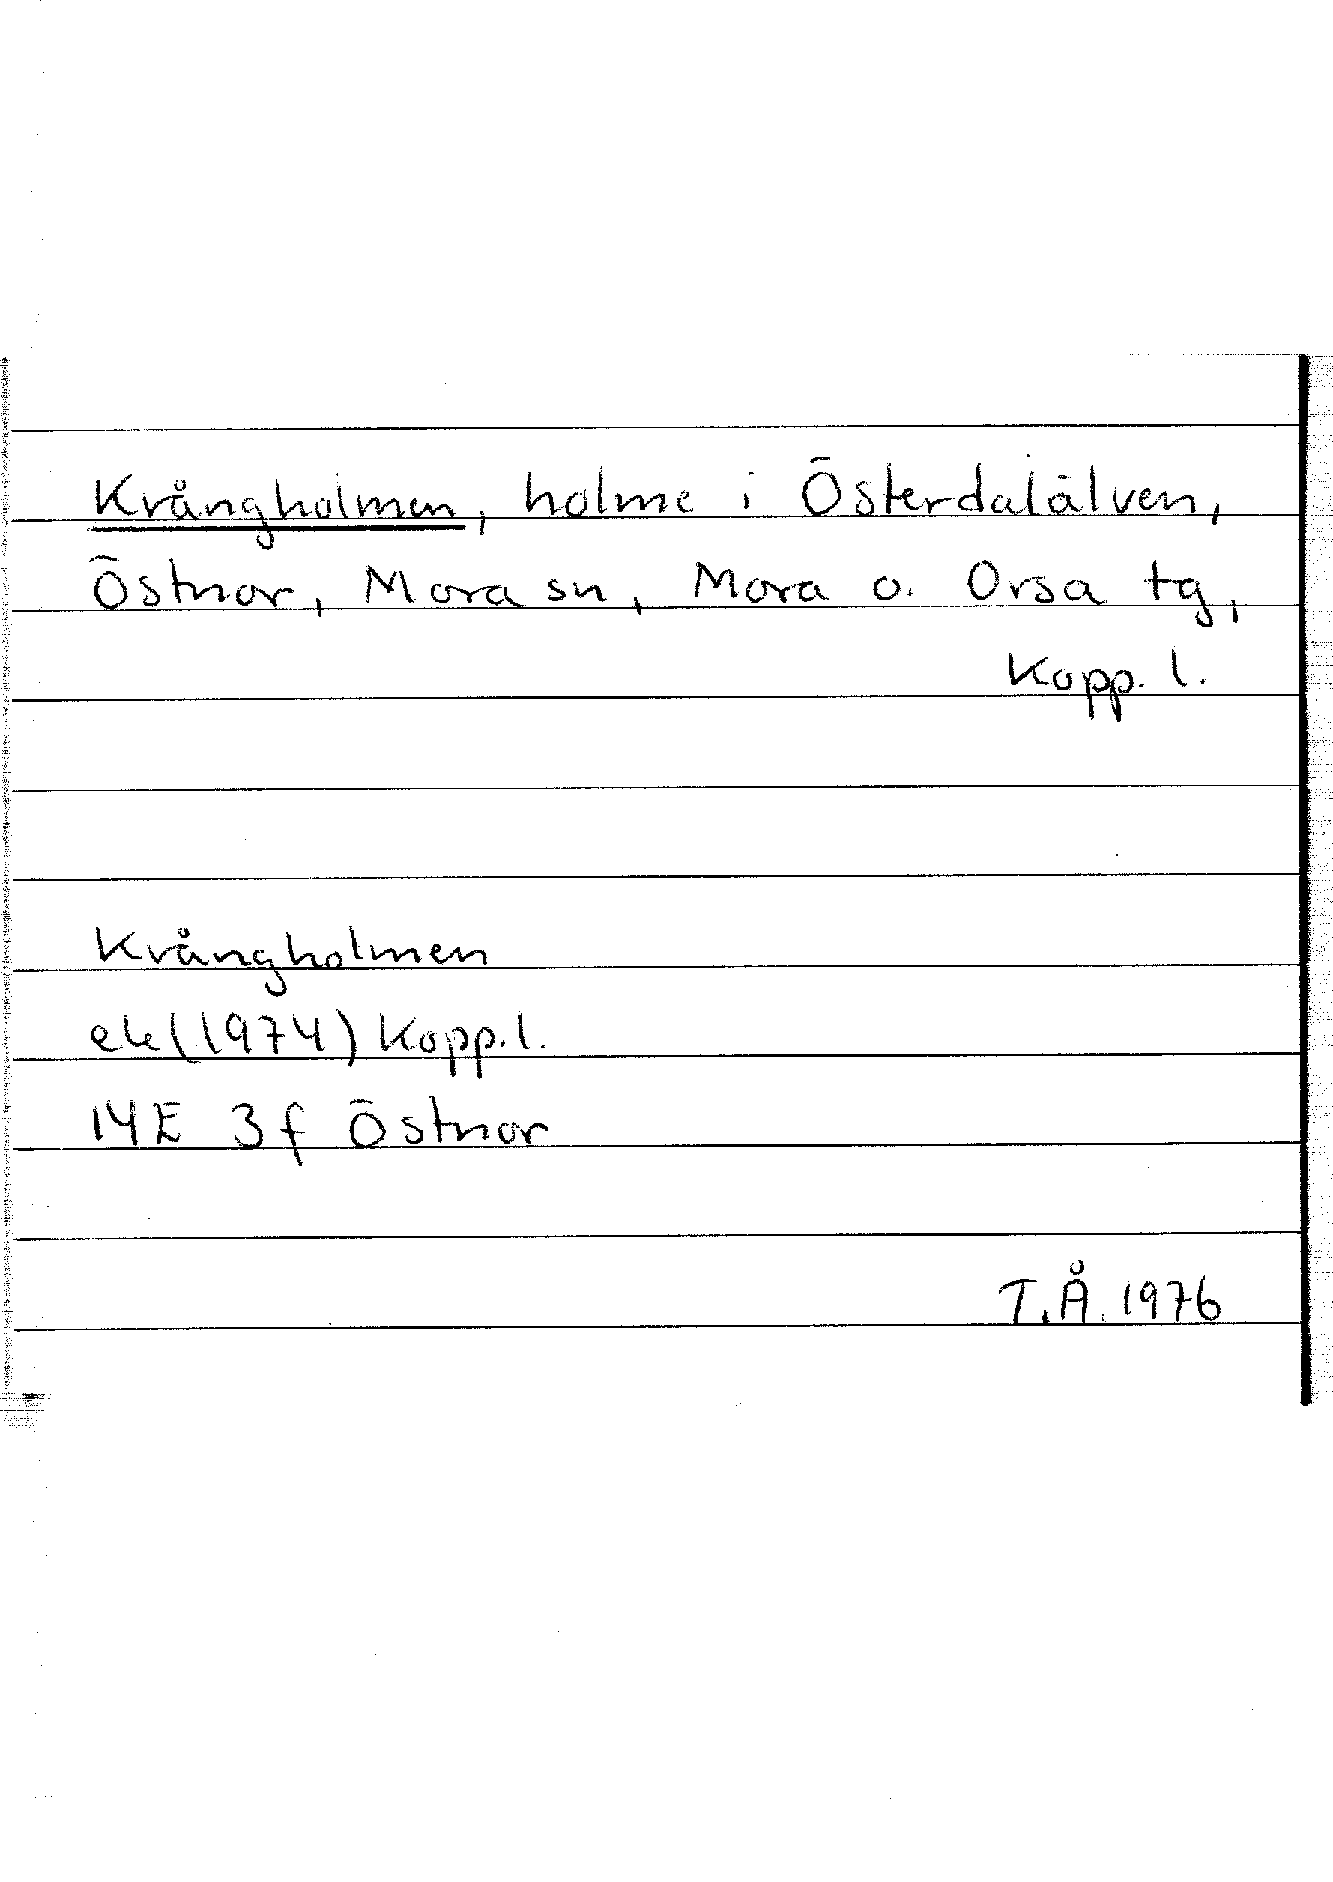 Krångholmen, holme i Österdalälven,
Östnor, Mora sn, Mora o. Orsa tg,
Kopp. l.
Krångholmen
ek(1974) Kopp. l.
14E 3f Östnor
T.Å. 1976